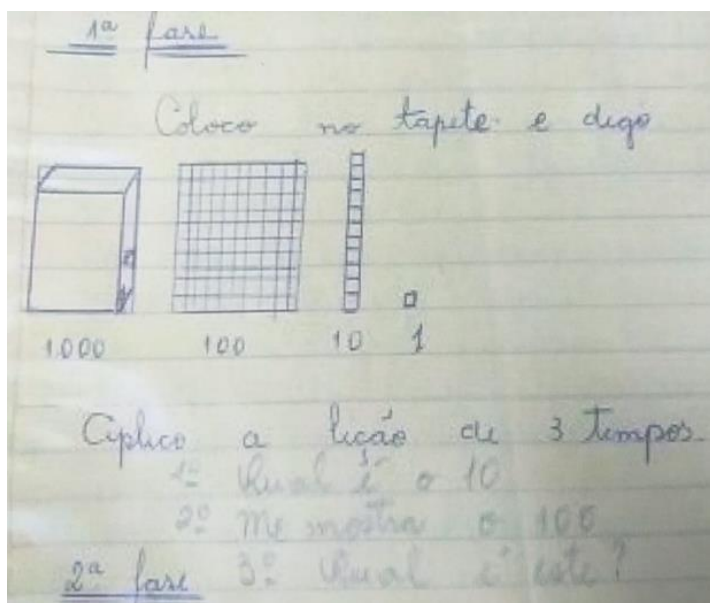 1ª fase
Coloco no tapete e digo
1.000 100 10 1
Aplico a lição de 3 tempos.
1º Qual é o 10
2º Me mostra o 100
2ª fase 3º Qual é este?